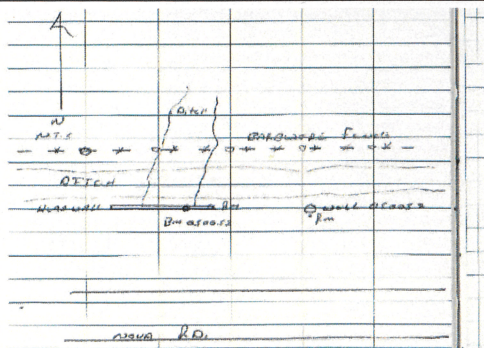 N
N.T.S
Ditch
BARBWIRE FENCE
DITCH
HEADWALL
RM
BM 050052
Well 050052
RM
NOVA RD.